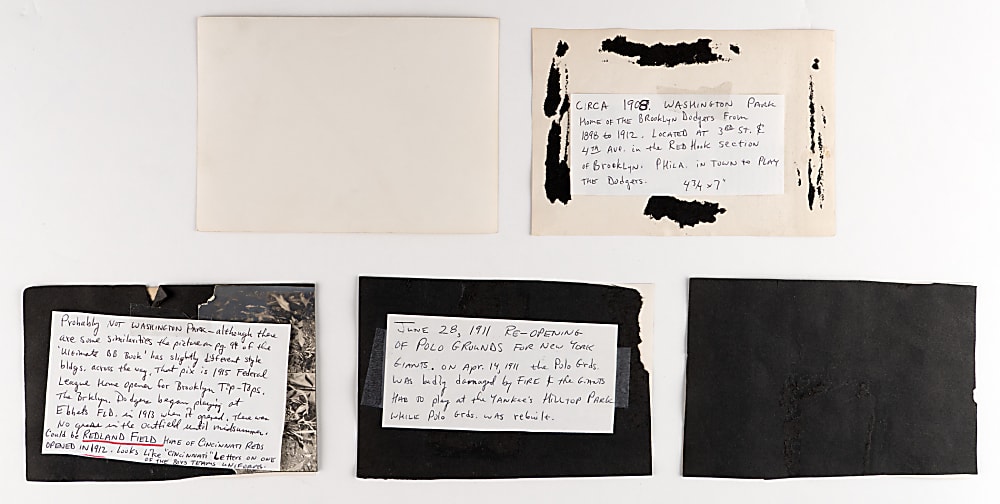 CIRCA 1908. WASHINGTON PARK
HOME OF THE BROOKLYN Dodgers FROM
1898 to 1912. LOCATED AT 3RD ST. &
4TH AVE. in the RED Hook SECTION
OF BROOKLYN. PHILA. IN TOWN to PLAY
THE Dodgers. 4 3/4 x 7"
Probably NOT WASHINGTON PARK - although there
are some similarities the picture on pg. 98 of the
'Ultimate BB Book' has slightly different style
bldgs. across the way. That pix is 1915 Federal
League Home opener for Brooklyn Tip-Tops.
The Brklyn. Dodgers began playing at
Ebbets FLD. in 1913 when it opened. There was
NO grass in the outfield until midsummer.
Could be REDLAND FIELD HOME OF CINCINNATI REDS
OPENED IN 1912. Looks Like "CINCINNATI" Letters ON ONE
OF THE BOYS TEAMS UNIFORMS.
JUNE 28, 1911 RE-OPENING
OF POLO GROUNDS FOR NEW YORK
GIANTS. ON Apr. 14, 1911 the Polo Grds.
WAS badly damaged by FIRE & the GIANTS
HAD to play at the YANKEE'S HILLTOP PARK
WHILE POLO Grds. WAS rebuilt.